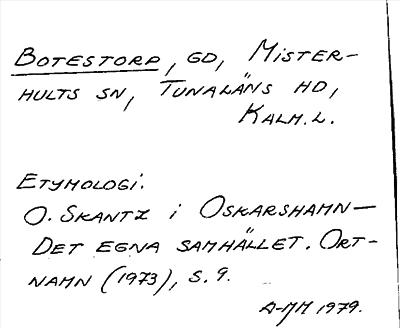 BOTESTORP, GD, MISTER-
HULTS SN, TUNALÄNS HD,
KALM. L.
ETYMOLOGI.
O. SKANTZ i OSKARSHAMN—
DET EGNA SAMHÄLLET. ORT-
NAMN (1973), S. 9.
A-MM 1979.